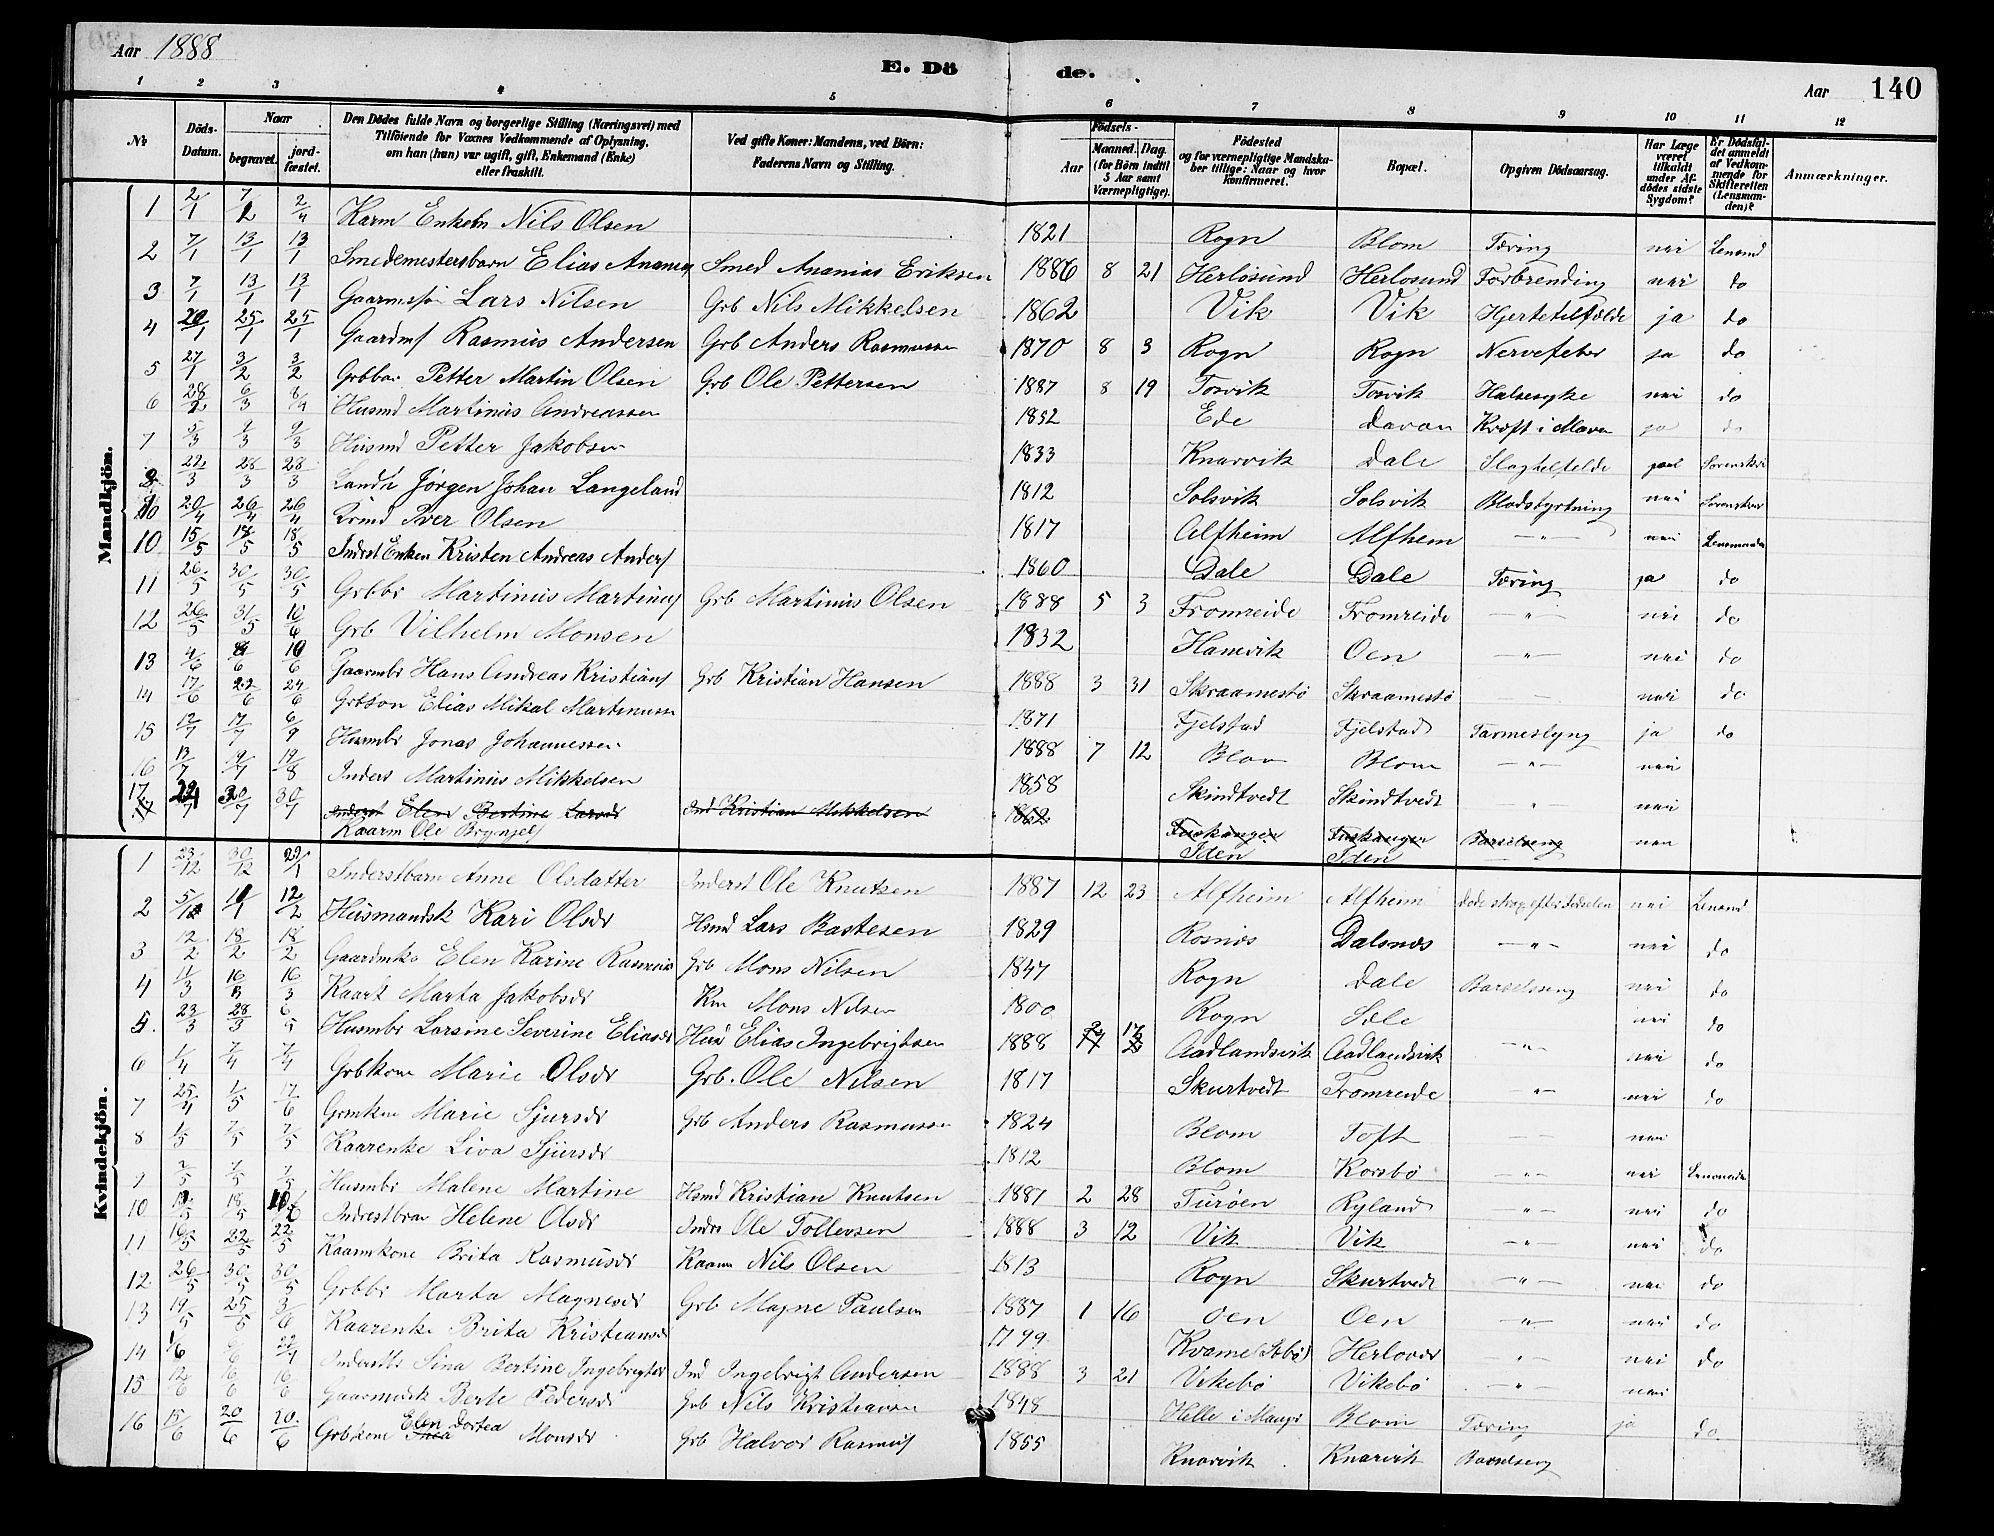 Aar 1888
E. Döde.
Aar 140
1 2 3 4 5 6 7 8 9 10 11 12
№ Döds-Datum. Naar begravet. jordfæstet. Den Dödes fulde Navn og borgerlige Stilling (Næringsvei) med Tilföiende for Voxnes Vedkommende af Oplysning, om han (hun) var ugift, gift, Enkemand (Enke) eller fraskilt. Ved gifte Koner: Mandens, ved Börn: Faderens Navn og Stilling. Födsels- Aar Maaned. Dag. (for Börn indtil 5 Aar samt Værnepligtige). Födested og for værnepligtige Mandskaber tillige: Naar og hvor konfirmeret. Bopæl. Opgiven Dödsaarsag. Har Læge været tilkaldt under Afdödes sidste Sygdom? Er Dödsfaldet anmeldt af Vedkommende for Skifteretten (Lensmanden)? Anmærkninger.
Mandkjön.
1 2/1 7/2 2/4 Karm Enkem Nils Olsen 1821 Rogn Blom Tæring nei Lensmd
2 7/1 13/1 13/1 Smedemestersbarn Elias Ananias Smed Ananias Eriksen 1886 8 21 Herlösund Herlosund Forbrending nei do
3 7/1 13/1 13/1 Gaarmssön Lars Nilsen Grb Nils Mikkelsen 1862 Vik Vik Hjertetilfælde ja do
4 20/1 25/1 25/1 Gaardms Rasmus Andersen Grb Anders Rasmussen 1870 8 3 Rogn Rogn Nervefeber ja do
5 27/1 3/2 3/2 Grbbar Petter Martin Olsen Grb Ole Pettersen 1887 8 19 Torvik Torvik Halsesyke nei do
6 28/2 6/3 8/4 Husmd Martinus Andreassen 1832 Ede Davan Kræft i Maven ja do
7 5/3 9/3 9/3 Husmd Petter Jakobsen 1833 Knarvik Dale Slagtilfelde Sorenskri
8 22/3 28/3 28/3 Landh Jørgen Johan Langeland 1812 Solsvik Solsvik Blodstyrtning nei Sorenskri
20/4 26/4 26/4 Iver Olsen 1817 Alfheim Alfhem —"— nei Lensmanden
10 15/5 18/5 18/5 Indrst Enkem Kristen Andreas Anders 1860 Dale Dale Tæring ja do
11 26/5 30/5 30/5 Grbbr Martinus Martinus Grb Martinus Olsen 1888 5 3 Fromreide Fromreide —"— nei do
12 26/5 31/5 10/6 Grb Vilhelm Monsen 1832 Hanevik Oen —"— nei do
13 4/6 9/6 10/6 Gaarmbr Hans Andreas Kristians Grb Kristian Hansen 1888 3 31 Skraamestö Skraamestö nei do
14 17/6 22/6 24/6 Grbsøn Elias Mikal Martinussen 1871 Fjelstad Fjelstad Tarmeslyng ja do
15 12/7 17/7 6/9 Husmbr Jonas Johannessen 1888 7 12 Blom Blom —"— nei
16 13/7 9/7 19/8 Inders Martinus Mikkelsen 1858 Skindtvedt Skindtvedt " nei
17 24/7 30/7 30/7 Inderst Elen Bertine Larsdr Ind Kristian Mikkelsen 1862 Barselseng nei
Kaarm Ole Brynjels Iden Iden
Kvindekjön.
1 23/12 30/12 22/1 Inderstbarn Anne Olsdatter Inderst Ole Knutsen 1887 12 23 Alfheim Alfheim Döde strax efter Fødselen nei Lensmd
2 5/1 11/1 12/2 Husmandsk Kari Olsdr Hsmd Lars Bastesen 1829 Rosnes Dalsnes —"— nei do
3 12/2 18/2 18/2 Gaardmko Elen Karine Rasmus Grb Mons Nilsen 1847 Rogn Dale Barselseng nei do
4 11/3 16/3 16/3 Kaark Marta Jakobsdr Km Mons Nilsen 1800 Rogn Sæle nei do
5 23/3 28/3 6/5 Husmbr Larsine Severine Eliasdr Hus Elias Ingebrigtsen 1888 Aadlandsvik Aadlandsvik —"— nei do
6 1/4 7/4 7/4 Grbkone Marie Olsdr Grb. Ole Nilsen 1817 Skurtvedt Fromreide " nei do
7 25/4 1/5 17/6 Grmken Marie Sjursdr Grb Anders Rasmussen 1824 Blom Toft nei
8 1/5 7/5 7/5 Kaarenke Liva Sjursdr 1812 Blom Korsbö —"— nei Lensmanden
9 2/5 7/5 7/5 Husmbr Malene Martine Hsmd Kristian Knutsen 1887 2 28 Turöen Ryland —"— nei do
10 12/5 18/5 10/6 Indrestbrn Helene Olsdr Indrs Ole Tollevsen 1888 3 12 Vik Vik —"— nei do
11 16/5 22/5 22/5 Kaarmkone Brita Rasmusdr Kaarm Nils Olsen 1813 Rogn Skurtvedt —"— nei do
12 26/5 30/5 30/5 Grbbr Marta Magnesdr Grb Magne Paulsen 1887 1 16 Oen Oen —"— nei do
13 19/5 25/5 3/6 Kaarenke Brita Kristiansdr 1799 Kvame Herlover " nei do
14 1/6 6/6 22/7 Inderstbr Sina Bertine Ingebrigtsdr Ind Ingebrigt Andersen 1888 3 21 Vikebö Vikebö —"— nei
15 12/6 16/6 16/6 Gaarmndsk Berte Pedersdr Grb Nils Kristiansen 1848 Helle i Manger Blom Tæring ja do
16 15/6 20/6 20/6 Grbkone Elen Dortea Monsdr Grb Halvor Rasmus 1855 Knarvik Knarvik Barselseng